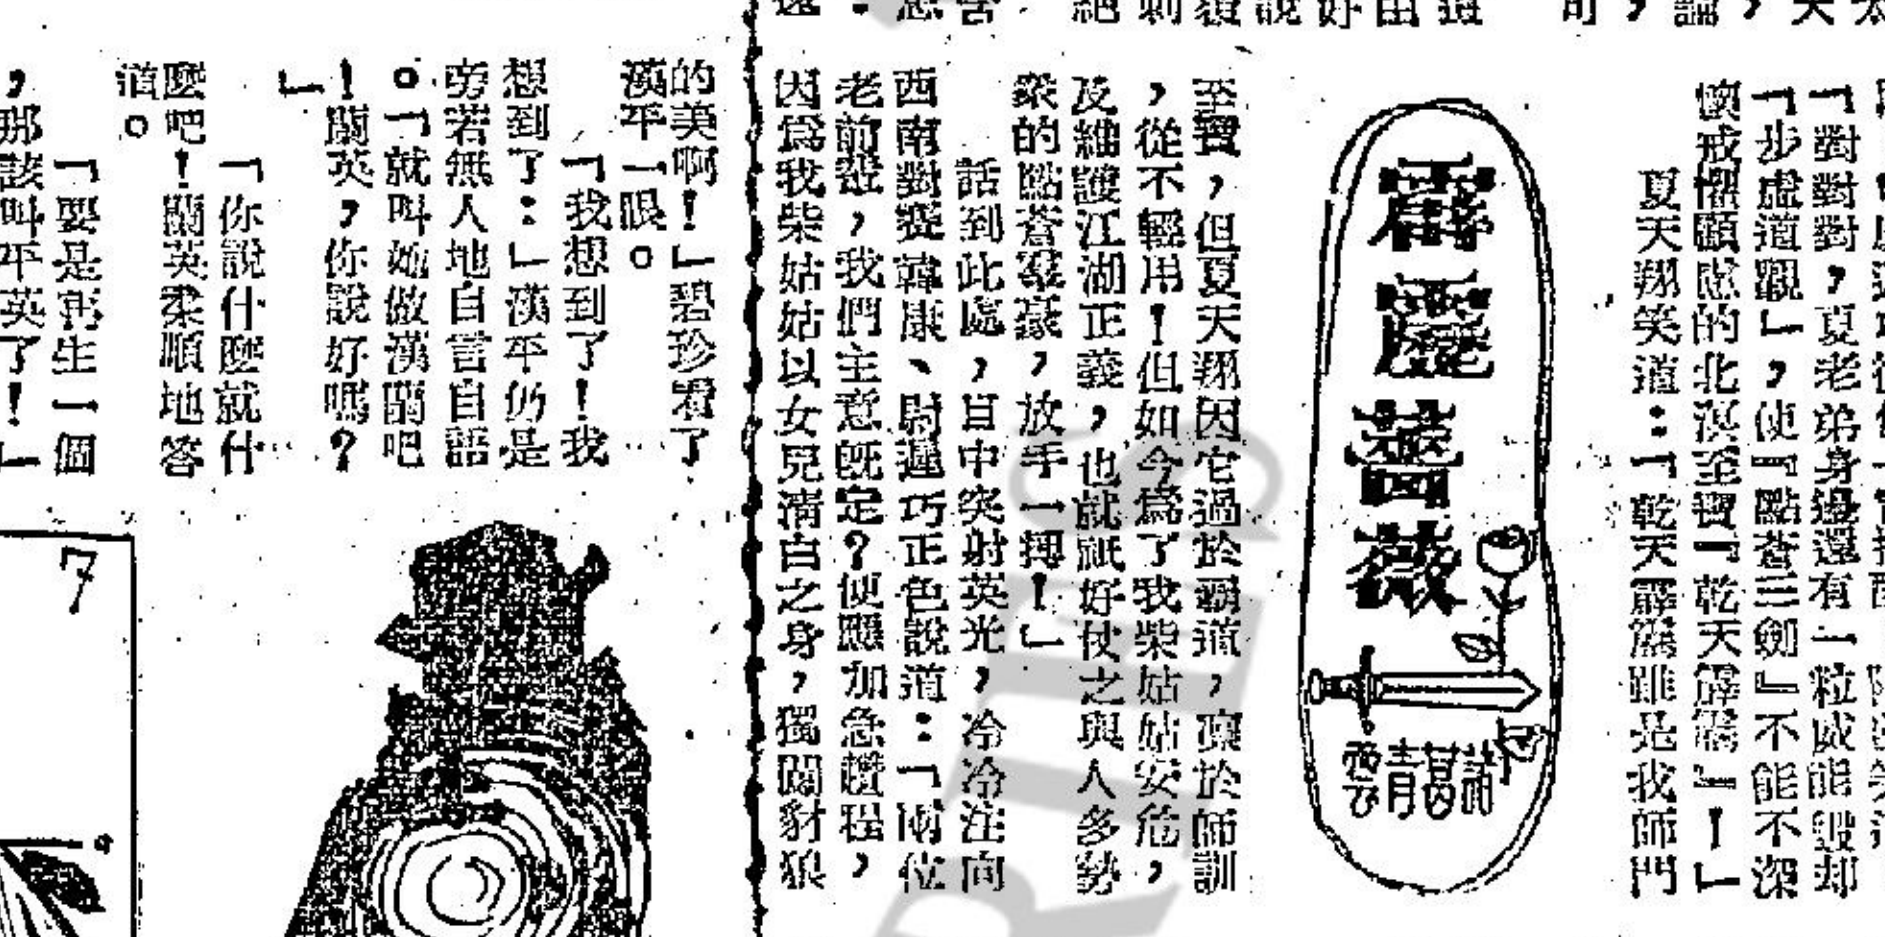 「對對對，夏老弟身邊還有一粒威能毀却
「步虛道觀」，使『點蒼三劍』不能不深
懷戒懼顧慮的北溟至寶『乾天霹靂』！」
夏天翔笑道：「乾天霹靂雖是我師門
霹靂薔薇
諸葛青雲
至寶，但夏天翔因它過於霸道，稟於師訓
，從不輕用！但如今爲了我柴姑姑安危，
及維護江湖正義，也就祇好仗之與人多勢
衆的點蒼羣豪，放手一搏！」
話到此處，目中突射英光，冷冷注向
西南對蹙韓康、尉遲巧正色說道：「兩位
老前輩，我們主意既定？便應加急趲程，
因爲我柴姑姑以女兒清白之身，獨闖豺狼
的美啊！」碧珍看了
漢平一眼。
「我想到了！我
想到了：」漢平仍是
旁若無人地自言自語
。「就叫她做漢蘭吧
！蘭英，你說好嗎？
」
「你說什麼就什
麼吧！蘭英柔順地答
道。
「要是再生一個
，那該叫平英了！」
7